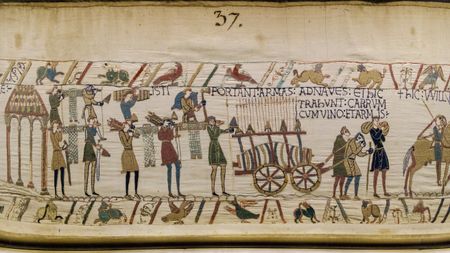 37.
ISTI PORTANT: ARMAS: ADNAVES: ETHIC
TRAhUNT: CARRUM
CUMVINO: ETARMIS:
†hIC: WILL